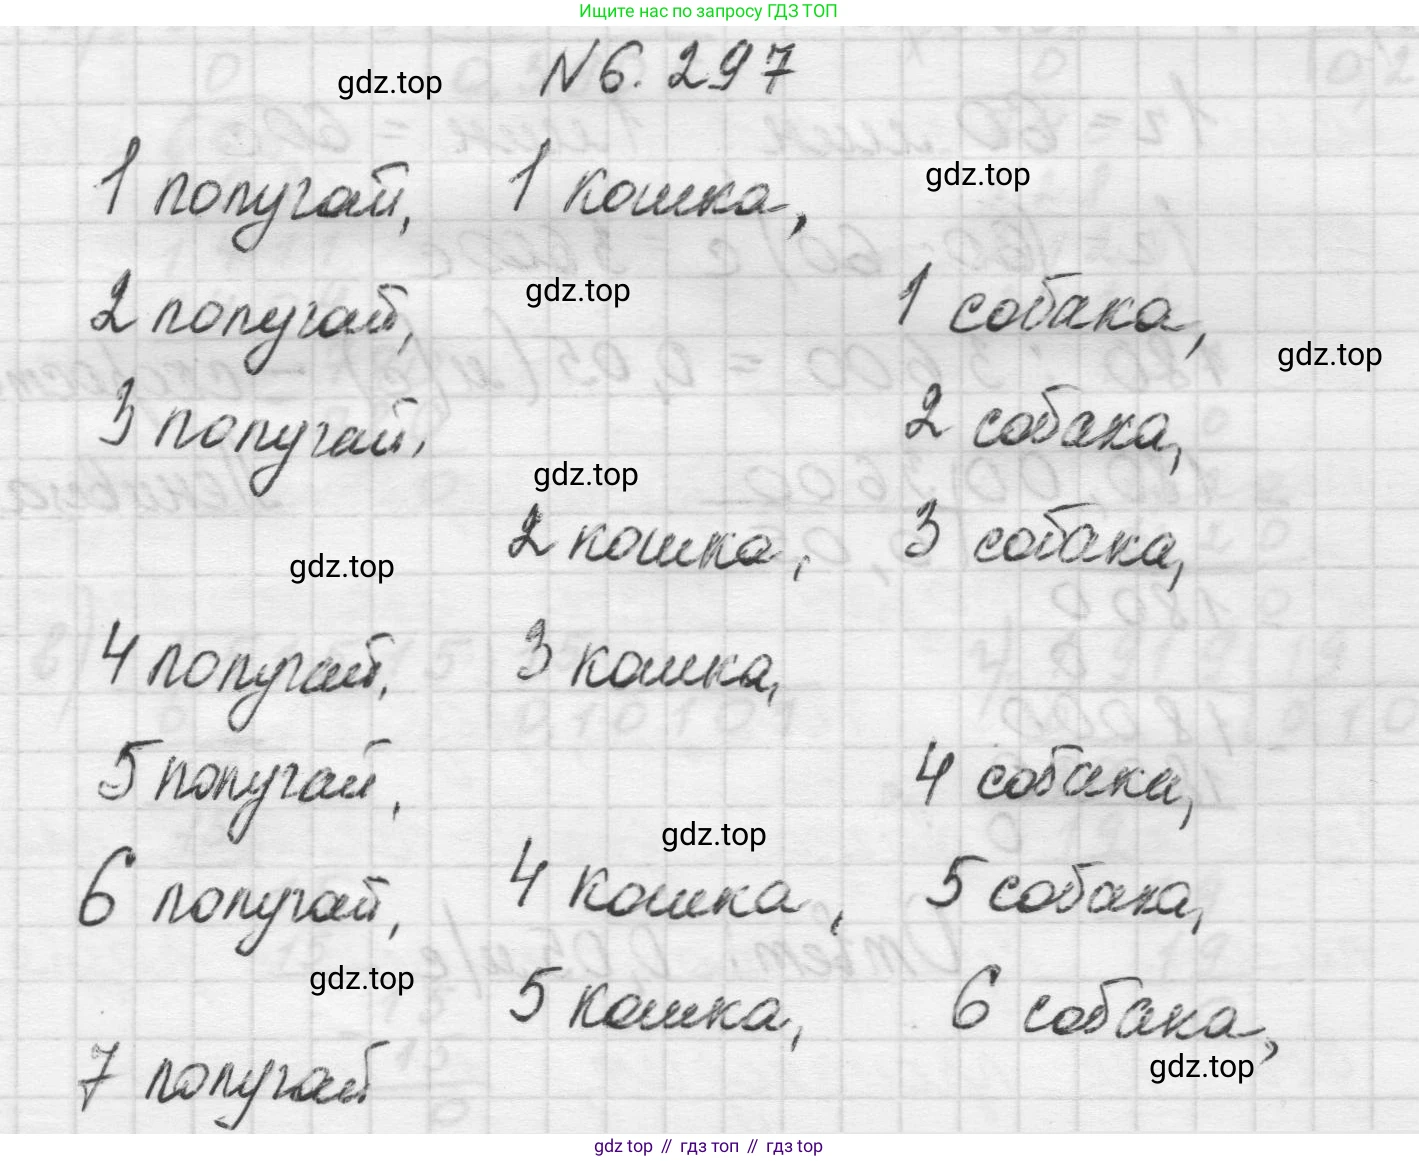 Ищите нас по запросу ГДЗ ТОП
gdz.top
№6.297
1 попугай, 1 кошка,
gdz.top
gdz.top
2 попугай, 1 собака,
gdz.top
3 попугай, 2 собака,
gdz.top
2 кошка, 3 собака,
gdz.top
4 попугай, 3 кошка,
5 попугай, 4 собака,
gdz.top
6 попугай, 4 кошка, 5 собака,
gdz.top
5 кошка, 6 собака,
gdz.top
7 попугай
gdz top // гдз топ // gdz top